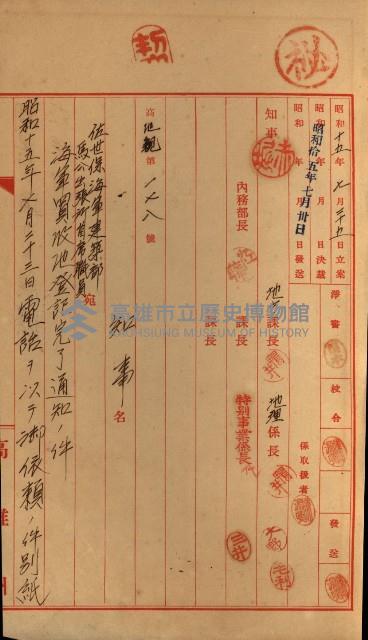 秘
昭和十五年七月二十五日立案
昭和 年 月 日決裁
昭和 年 月 日發送
昭和拾五年七月卅日
淨書
校合
發送
係取扱者
知事
內務部長
地方課長
課長
課長
地理係長
特別事業係長
三井
毛利
高地親第一七八號
知事名
佐世保海軍建築部
馬公出張所首席職員宛
海軍買收地登記完了通知ノ件
昭和十五年七月二十三日電話ヲ以テ御依賴ノ件別紙
高雄州
高雄市立歷史博物館
KAOHSIUNG MUSEUM OF HISTORY